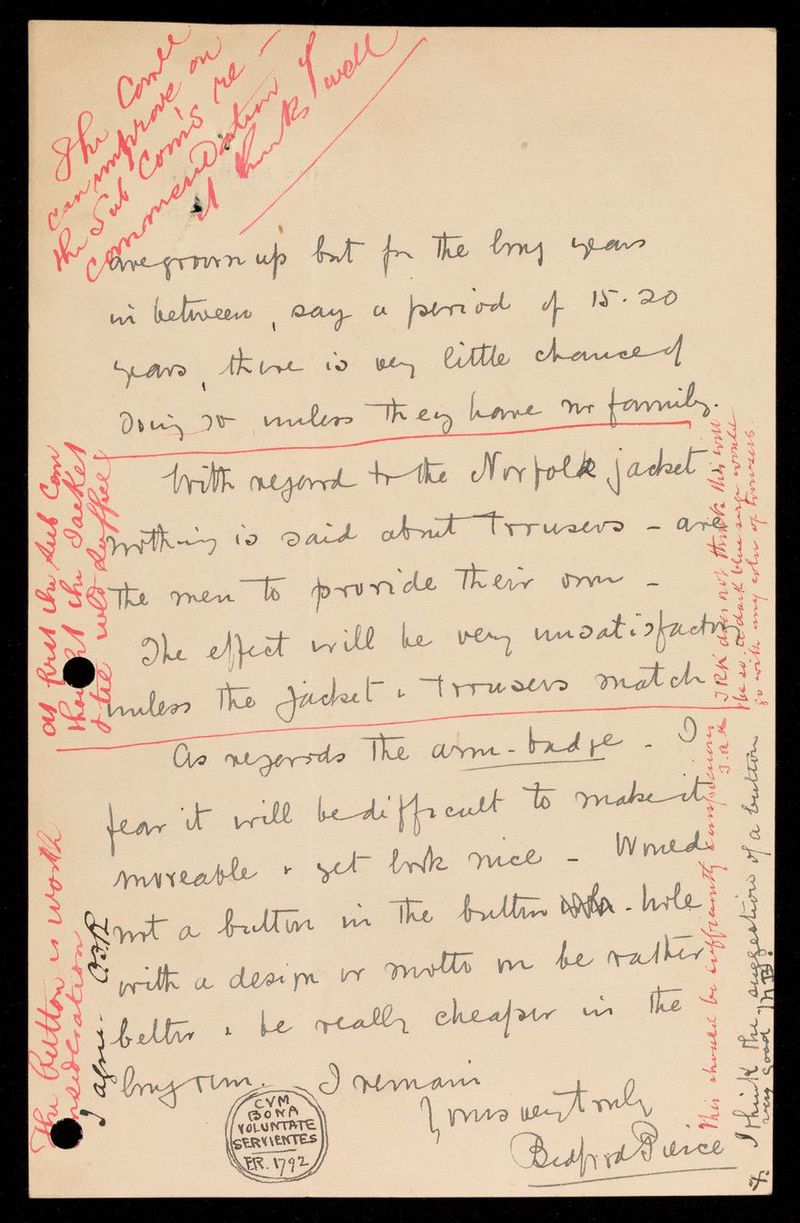 The Comee
can improve on
the Sub Com's re-
commendation if
it thinks well
are grown up but for the long years
in between, say a period of 15-20
years, there is very little chance of
doing so unless they have no family.
With regard to the Norfolk jacket
nothing is said about Trousers - are
the men to provide their own -
The effect will be very unsatisfactory
unless the jacket & Trousers match
As regards the arm-badge - I
fear it will be difficult to make it
moveable & yet look nice - Would
not a button in the button - hole
with a design or motto on be rather
better & be really cheaper in the
long run. I remain
Yours very truly
Bedford Pierce
CVM
BONA
VOLUNTATE
SERVIENTES
FR. 1792
At first the Sub Com
thought the Jacket
& tie wld suffice
The button is worth
consideration
I agree - 
does not think this will
be so. A dark blue serge would
go with any color of trousers.
This should be sufficiently conspicuous
I think the suggestion of a button
very good
4.